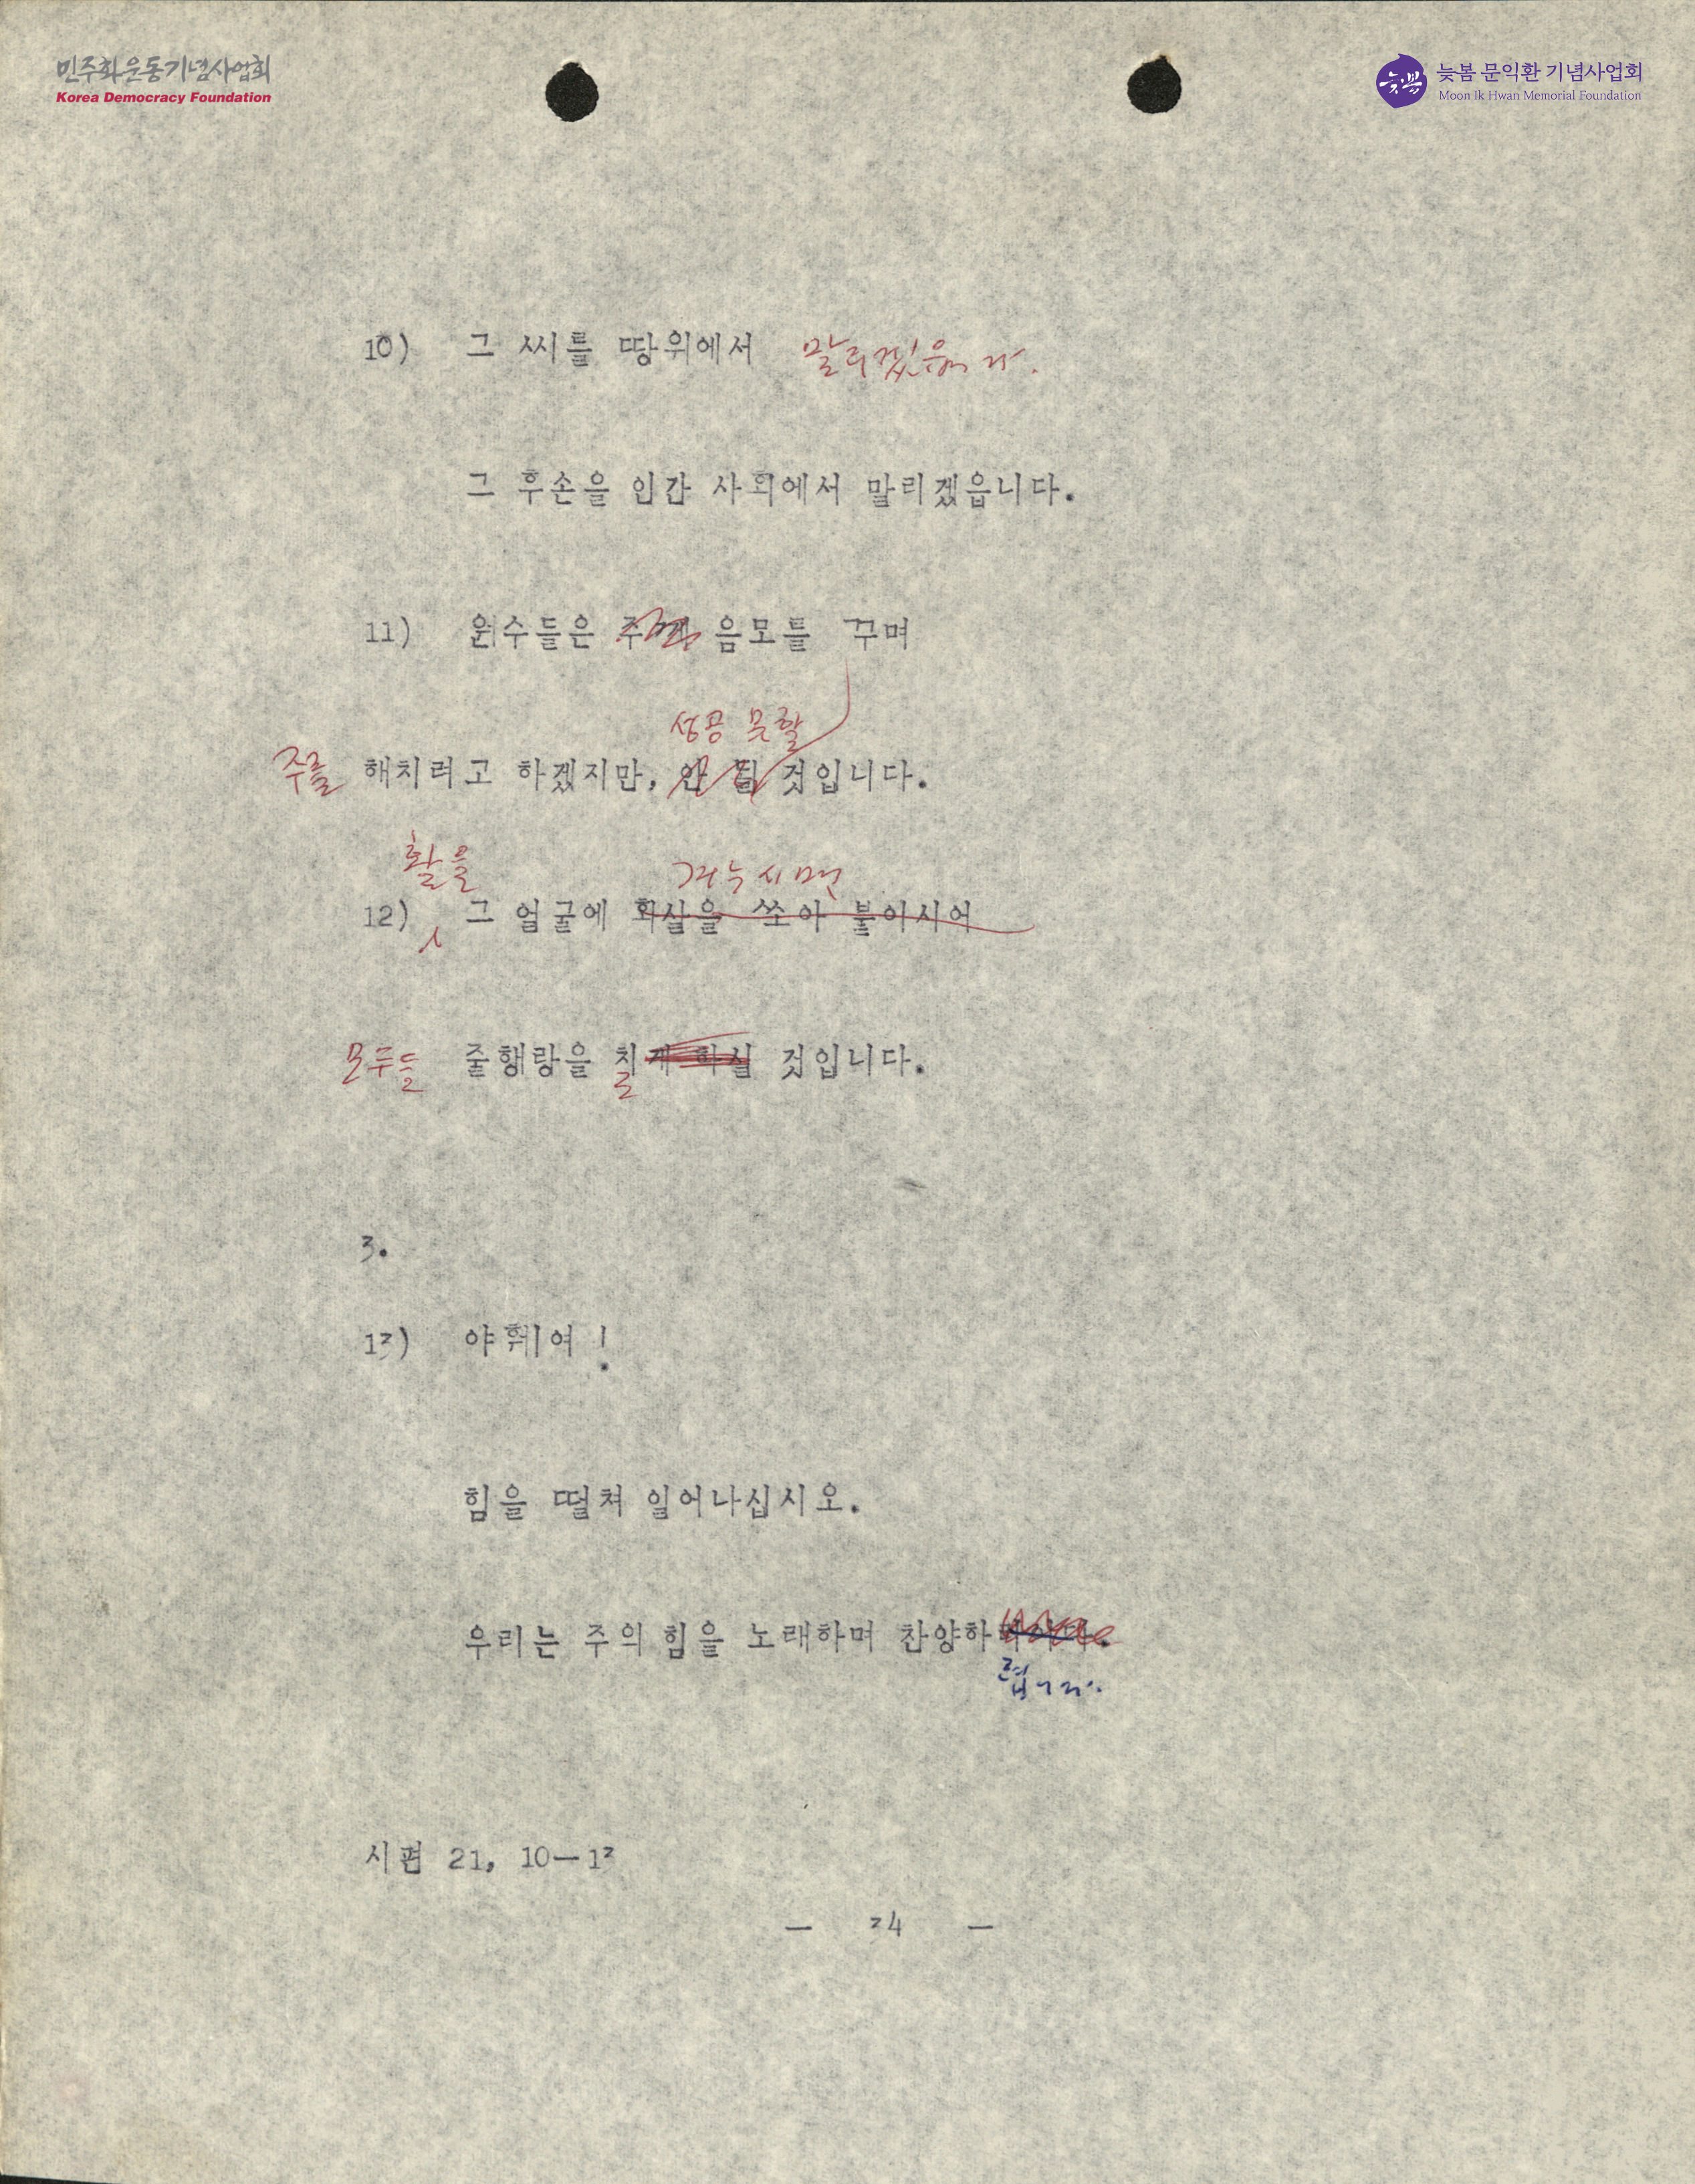 민주화운동기념사업회
Korea Democracy Foundation
늦봄 문익환 기념사업회
Moon Ik Hwan Memorial Foundation
늦봄
10) 그 씨를 땅위에서 말리겠읍니다.
그 후손을 인간 사회에서 말리겠읍니다.
11) 원수들은 주께 음모를 꾸며
성공 못할
주를 해치려고 하겠지만, 안 될 것입니다.
활을 겨누시면
12) 그 얼굴에 화살을 쏘아 붙이시어
모두들 줄행랑을 칠게 하실 것입니다.
3.
13) 야훼여!
힘을 떨쳐 일어나십시오.
우리는 주의 힘을 노래하며 찬양하
렵니다.
시편 21, 10—13
— 34 —